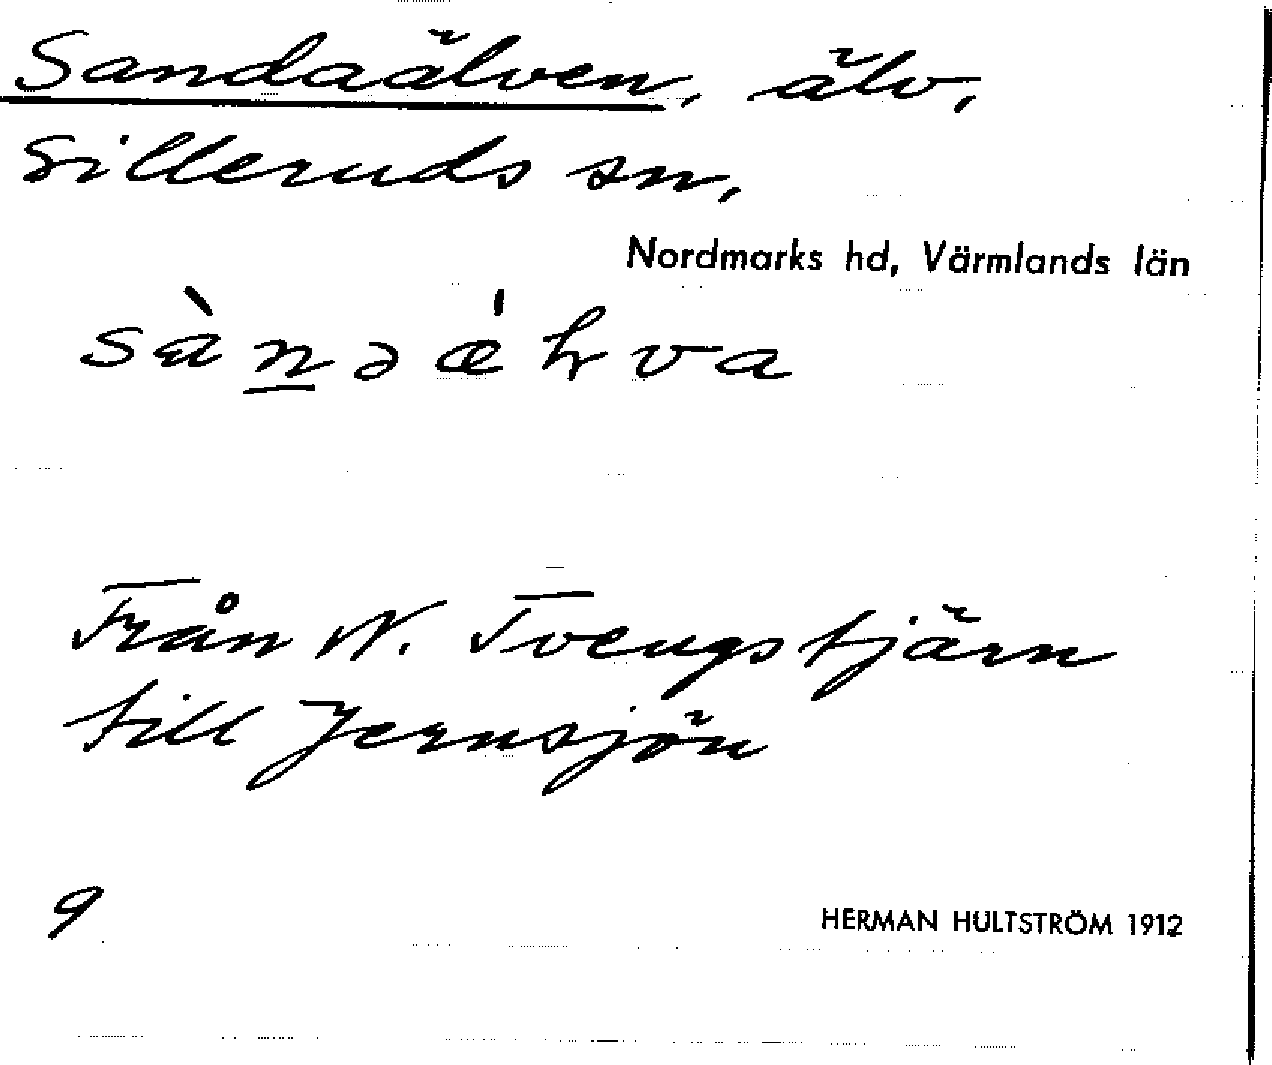 Sandaälven, älv,
Silleruds sn,
Nordmarks hd, Värmlands län
sàn̲əǽɽva
Från N. Tvengstjärn
till Jernsjön
9
HERMAN HULTSTRÖM 1912